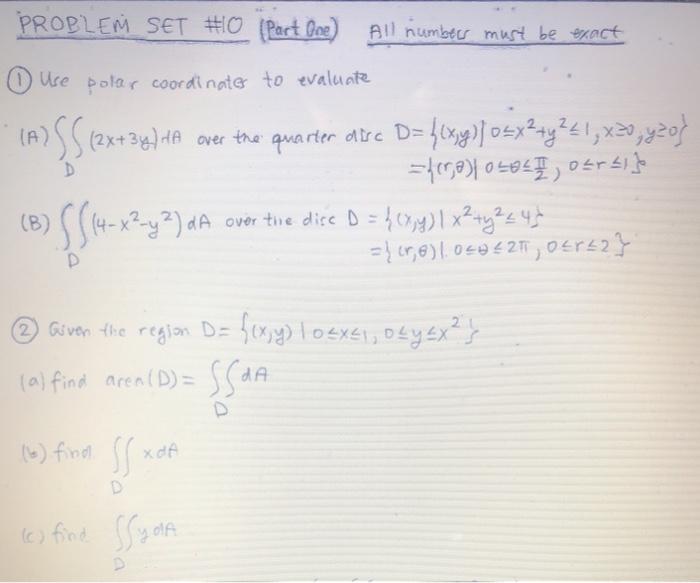 PROBLEM SET #10 (Part One) All numbers must be exact
① Use polar coordinates to evaluate
(A) ∬_D (2x+3y) dA over the quarter disc D = {(x,y) | 0≤x²+y²≤1, x≥0, y≥0}
= {(r,θ) | 0≤θ≤π/2, 0≤r≤1}
(B) ∬_D (4-x²-y²) dA over the disc D = {(x,y) | x²+y²≤4}
= {(r,θ) | 0≤θ≤2π, 0≤r≤2}
② Given the region D = {(x,y) | 0≤x≤1, 0≤y≤x²}
(a) find area(D) = ∬_D dA
(b) find ∬_D x dA
(c) find ∬_D y dA